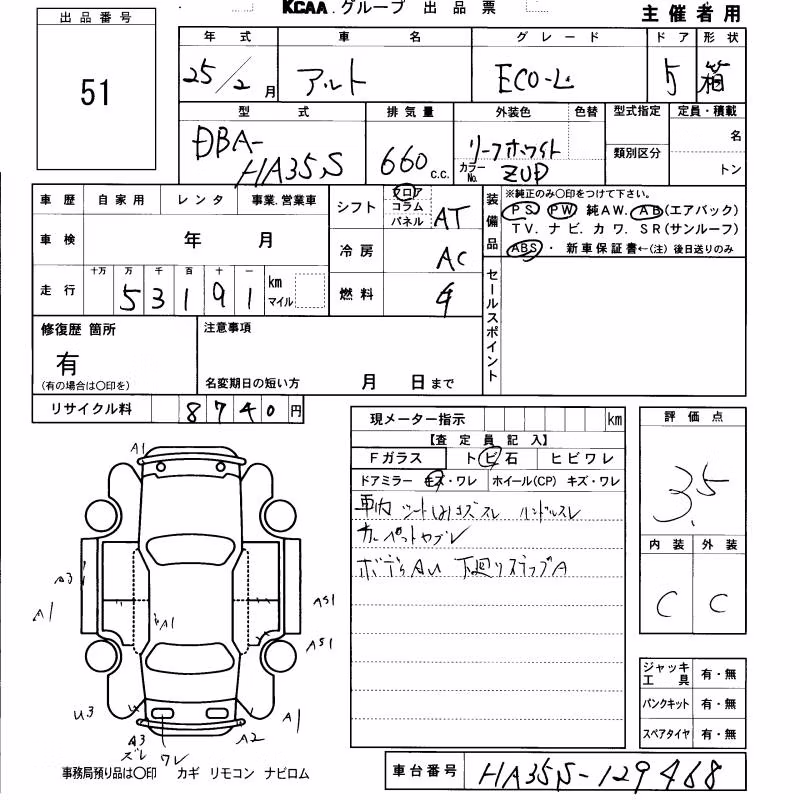 KCAA.グループ 出品票
主催者用
出品番号
51
年式 車名 グレード ドア 形状
25/2月 アルト ECO-L 5 箱
型式 排気量 外装色 色替 型式指定 定員・積載
DBA-HA35S 660 c.c. リーフホワイト 名
カラーNo. ZUD 類別区分 トン
車歴 自家用 レンタ 事業.営業車
車検 年 月
走行 十万 万 千 百 十 一
53191 km マイル
シフト フロア コラム パネル AT
冷房 AC
燃料
装備品
※純正のみ○印をつけて下さい。
PS PW 純AW. AB(エアバック)
TV. ナビ. カワ. SR(サンルーフ)
ABS・ 新車保証書←(注) 後日送りのみ
セールスポイント
修復歴 箇所
有
(有の場合は○印を)
注意事項
名変期日の短い方 月 日まで
リサイクル料 8740円
現メーター指示 km
【査定員記入】
Fガラス トビ石 ヒビワレ
ドアミラー キズ・ワレ ホイール(CP) キズ・ワレ
車内 シートはキズスレ ハンドルスレ
カーペットヤブレ
ボデーAU 下廻りスタップA
評価点
3.5
内装 外装
C C
A1
A3
A1
A1
AS1
AS1
U3
A3
スレ
ワレ
A2
A1
ジャッキ工具 有・無
パンクキット 有・無
スペアタイヤ 有・無
事務局預り品は○印 カギ リモコン ナビロム
車台番号 HA35S-129468